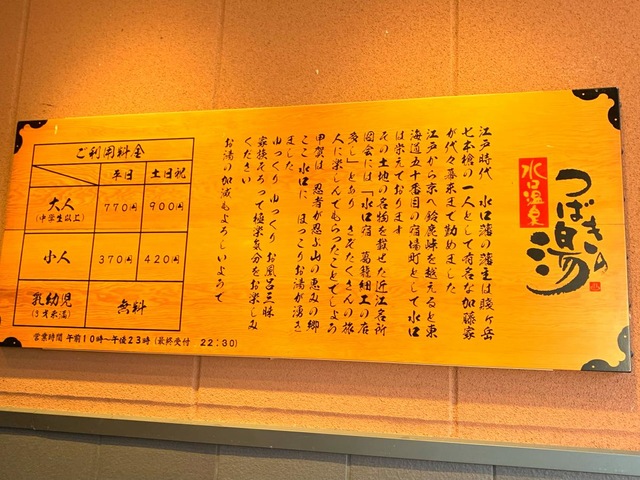 水口温泉
つばきの湯
江戸時代 水口藩の藩主は賤ヶ岳
七本槍の一人として有名な加藤家
が代々幕末まで勤めました
江戸から京へ鈴鹿峠を越えると東
海道五十番目の宿場町として水口
は栄えております
その土地の名物を載せた近江名所
図会には「水口宿 葛籠細工の店
多し」とあり さぞたくさんの旅
人に楽しんでもらったことでしょう
甲賀は 忍者が忍ぶ山の恵みの郷
ここ 水口に ほっこりお湯が湧き
ました
ゆっくり ゆっくり お風呂三昧
家族そろって極楽気分をお楽しみ
ください
お湯の加減もよろしいようで
ご利用料金
平日 土日祝
大人 (中学生以上) 770円 900円
小人 370円 420円
乳幼児 (3才未満) 無料
営業時間 午前10時〜午後23時 (最終受付 22:30)